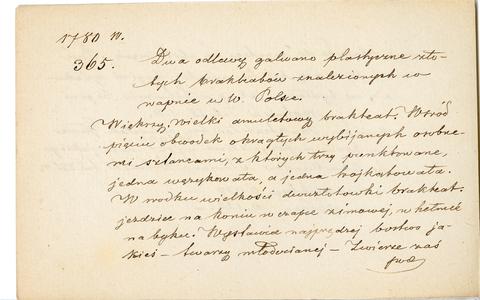 1780 n.
365. Dwa odlewy galwano plastyczne zło-
tych brakteatów znalezionych w
wapnie w W. Polsce.
Większy, wielki amuletowy brakteat. Wśród
pięciu obwódek okrągłych wybijanych osobne-
mi sztancami, z których trzy punktowane,
jedna wężykowata, a jedna trójkątowata.
W środku wielkości dwuzłotówki brakteat.
jeździec na koniu w czapce zimowej, w hełmie
na byku. Wystawia najprędzej bóstwo ja-
kieś – twarzy młodocianej – Zwierze zaś